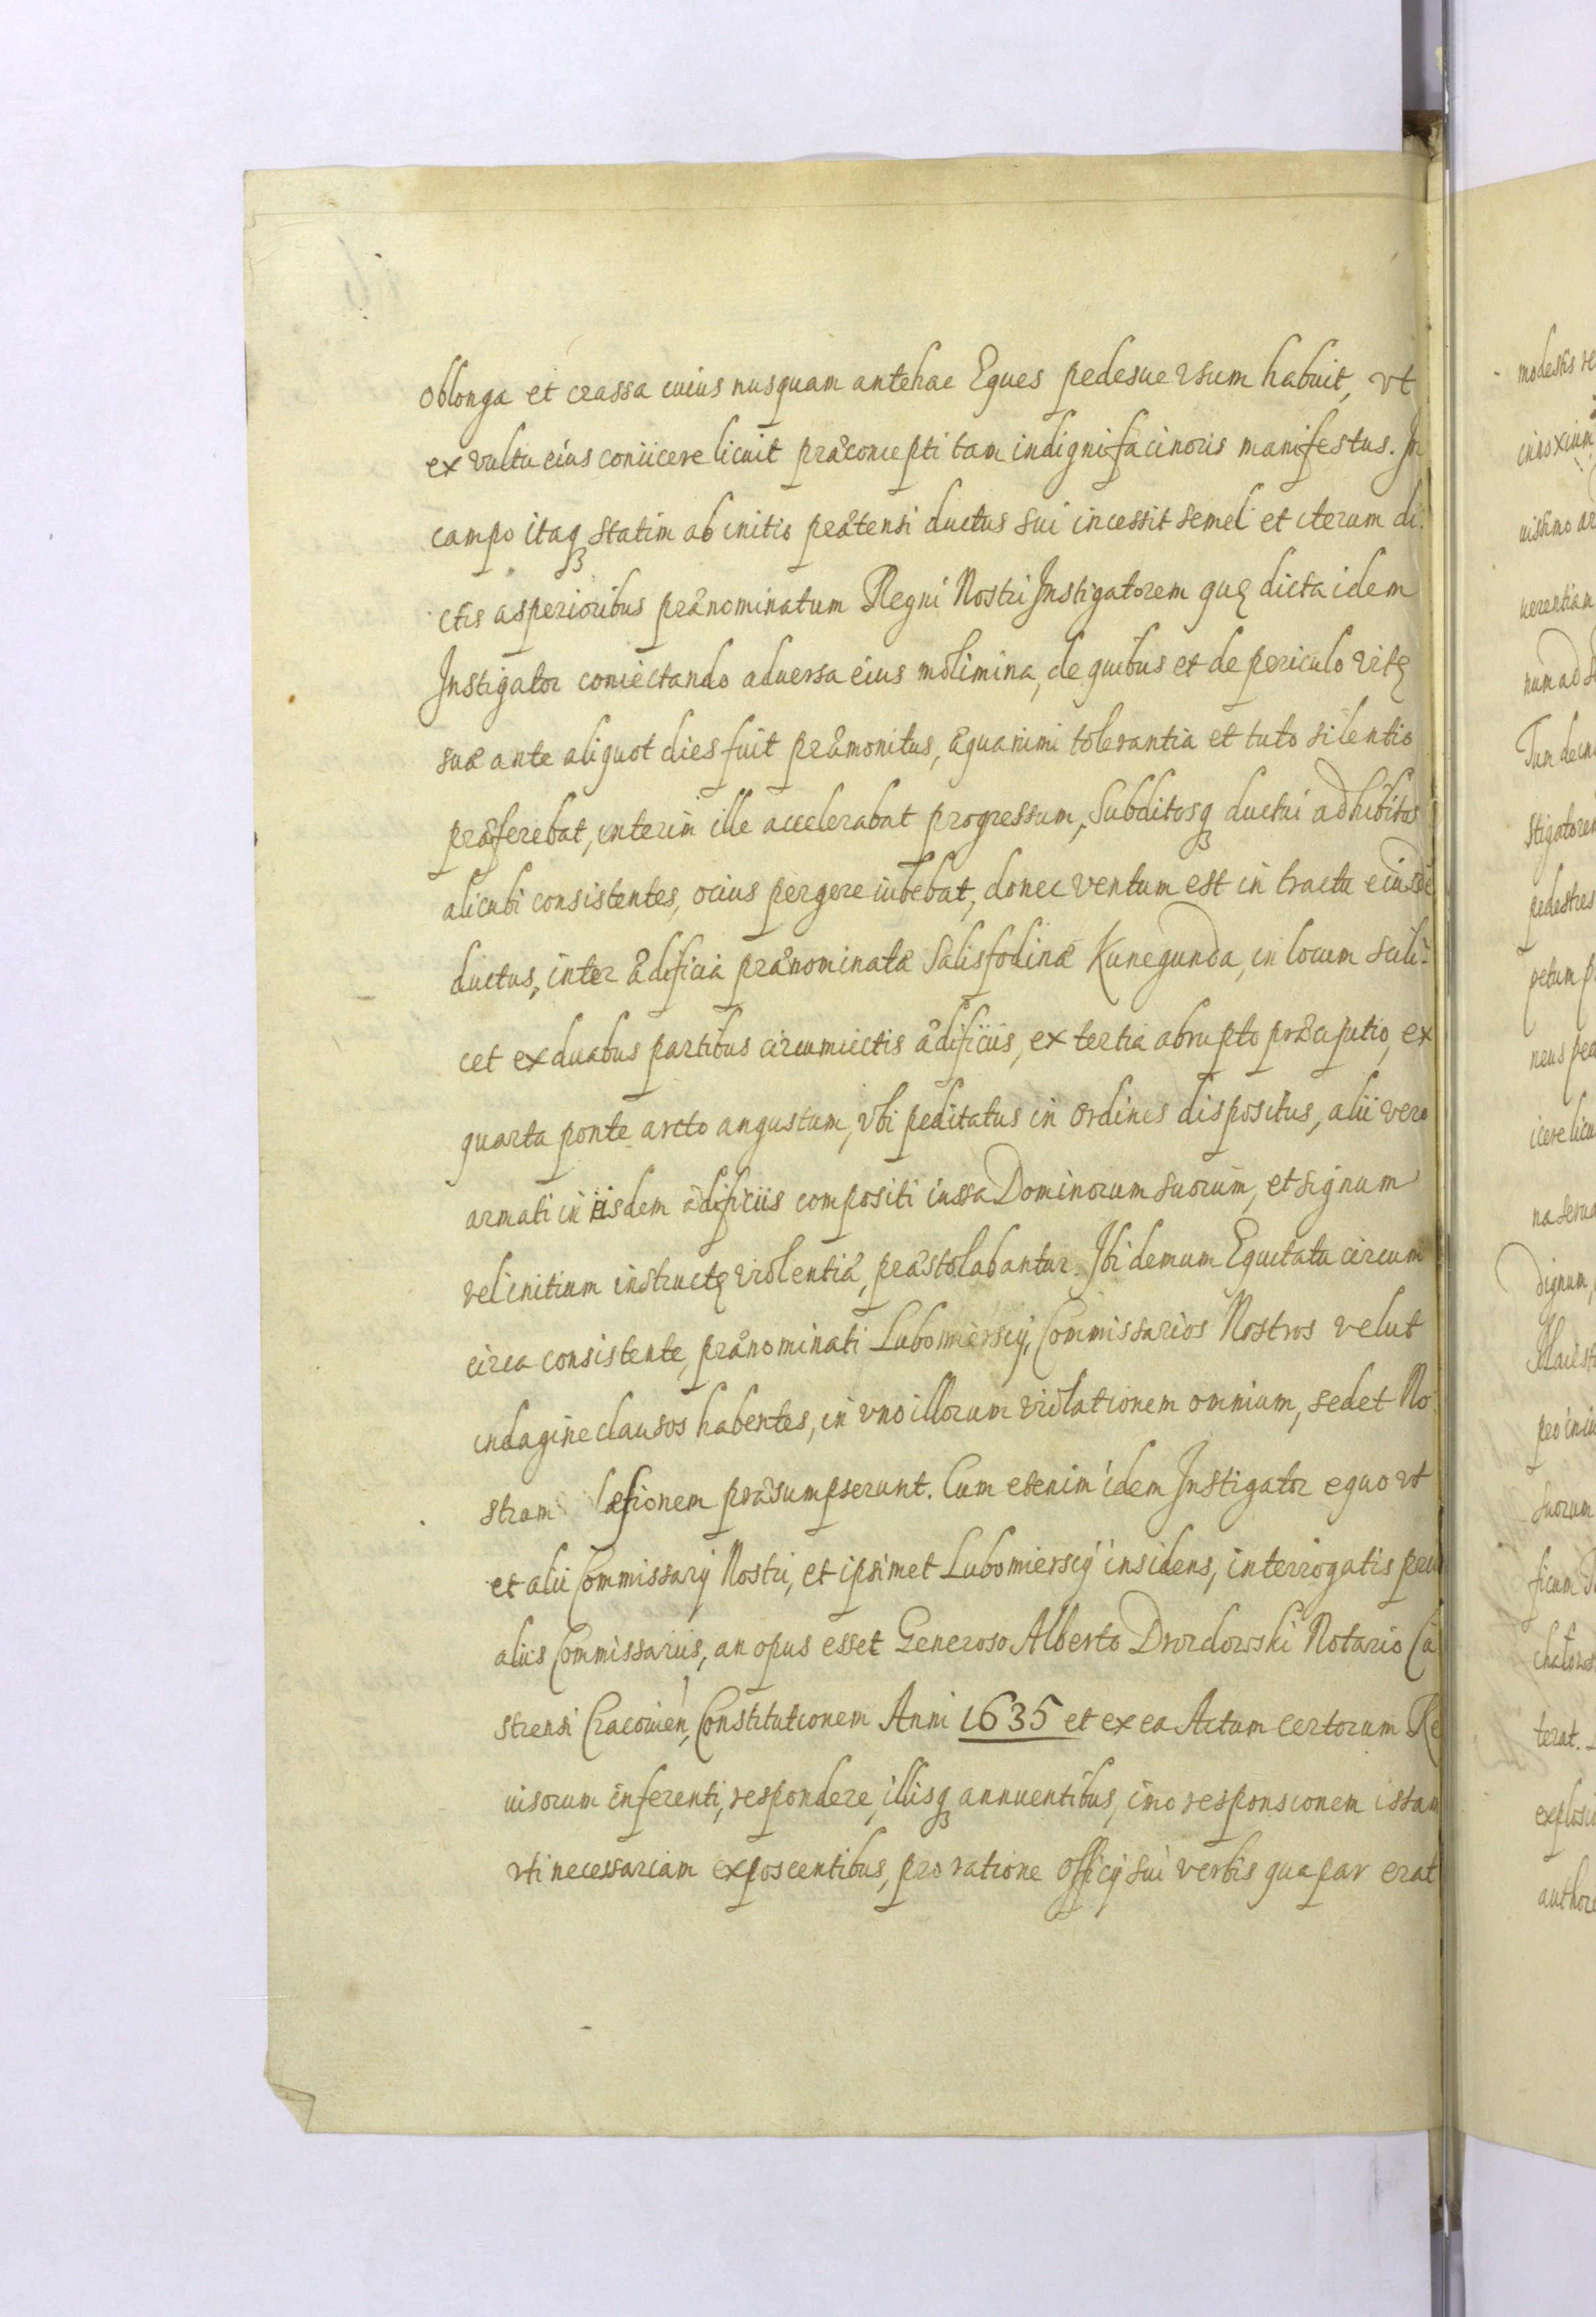 oblonga et crassa cuius nusquam antehac Eques pedesue vsum habuit, vt
ex vultu eius coniicere licuit præconcepti tam indigni facinoris manifestus. In
campo itaq₃ statim ab initio prætensi ductus sui incessit semel et iterum di-
ctis asperioribus prænominatum Regni Nostri Instigatorem quę dicta idem
Instigator coniectando aduersa eius molimina, de quibus et de periculo vitę
suæ ante aliquot dies fuit præmonitus, æquanimi tolerantia et tuto silentio
præferebat, interim ille accelerabat progressum, Subditosq₃ ductui adhibitos
alicubi consistentes, ocius pergere iubebat, donec ventum est in tractu eiusdē
ductus, inter ædificia prænominatæ Salisfodinæ Kunegunda, in locum scili-
cet ex duabus partibus circumiectis ædificiis, ex tertia abrupto præcipitio, ex
quarta ponte arcto angustum, vbi peditatus in ordines dispositus, alii vero
armati in iisdem ædificiis compositi iussa Dominorum suorum, et signum
vel initium instructę violentiæ, præstolabantur. Ibi demum Equitatu circum
circa consistente, prænominati Lubomierscÿ, Commissarios Nostros velut
indagine clausos habentes, in vno illorum violationem omnium, sed et No
stram læsionem præsumpserunt. Cum etenim idem Instigator equo vt
et alii Commissarÿ Nostri, et ipsimet Lubomierscÿ insidens, interrogatis prius
aliis Commissariis, an opus esset Generoso Alberto Drozdowski Notario Ca
strensi Cracouien, Constitutionem Anni 1635 et ex ea Actum certorum Re
uisorum inferenti, respondere, illisq₃ annuentibus, imo responsionem istam
vti necessariam exposcentibus, pro ratione Officÿ sui verbis qua par erat
modestis
inoxium
uissimo
uerentiam
num ad
Tum
pedestres
petum
neus
icere
dignum,
suorum
ficum
terat.